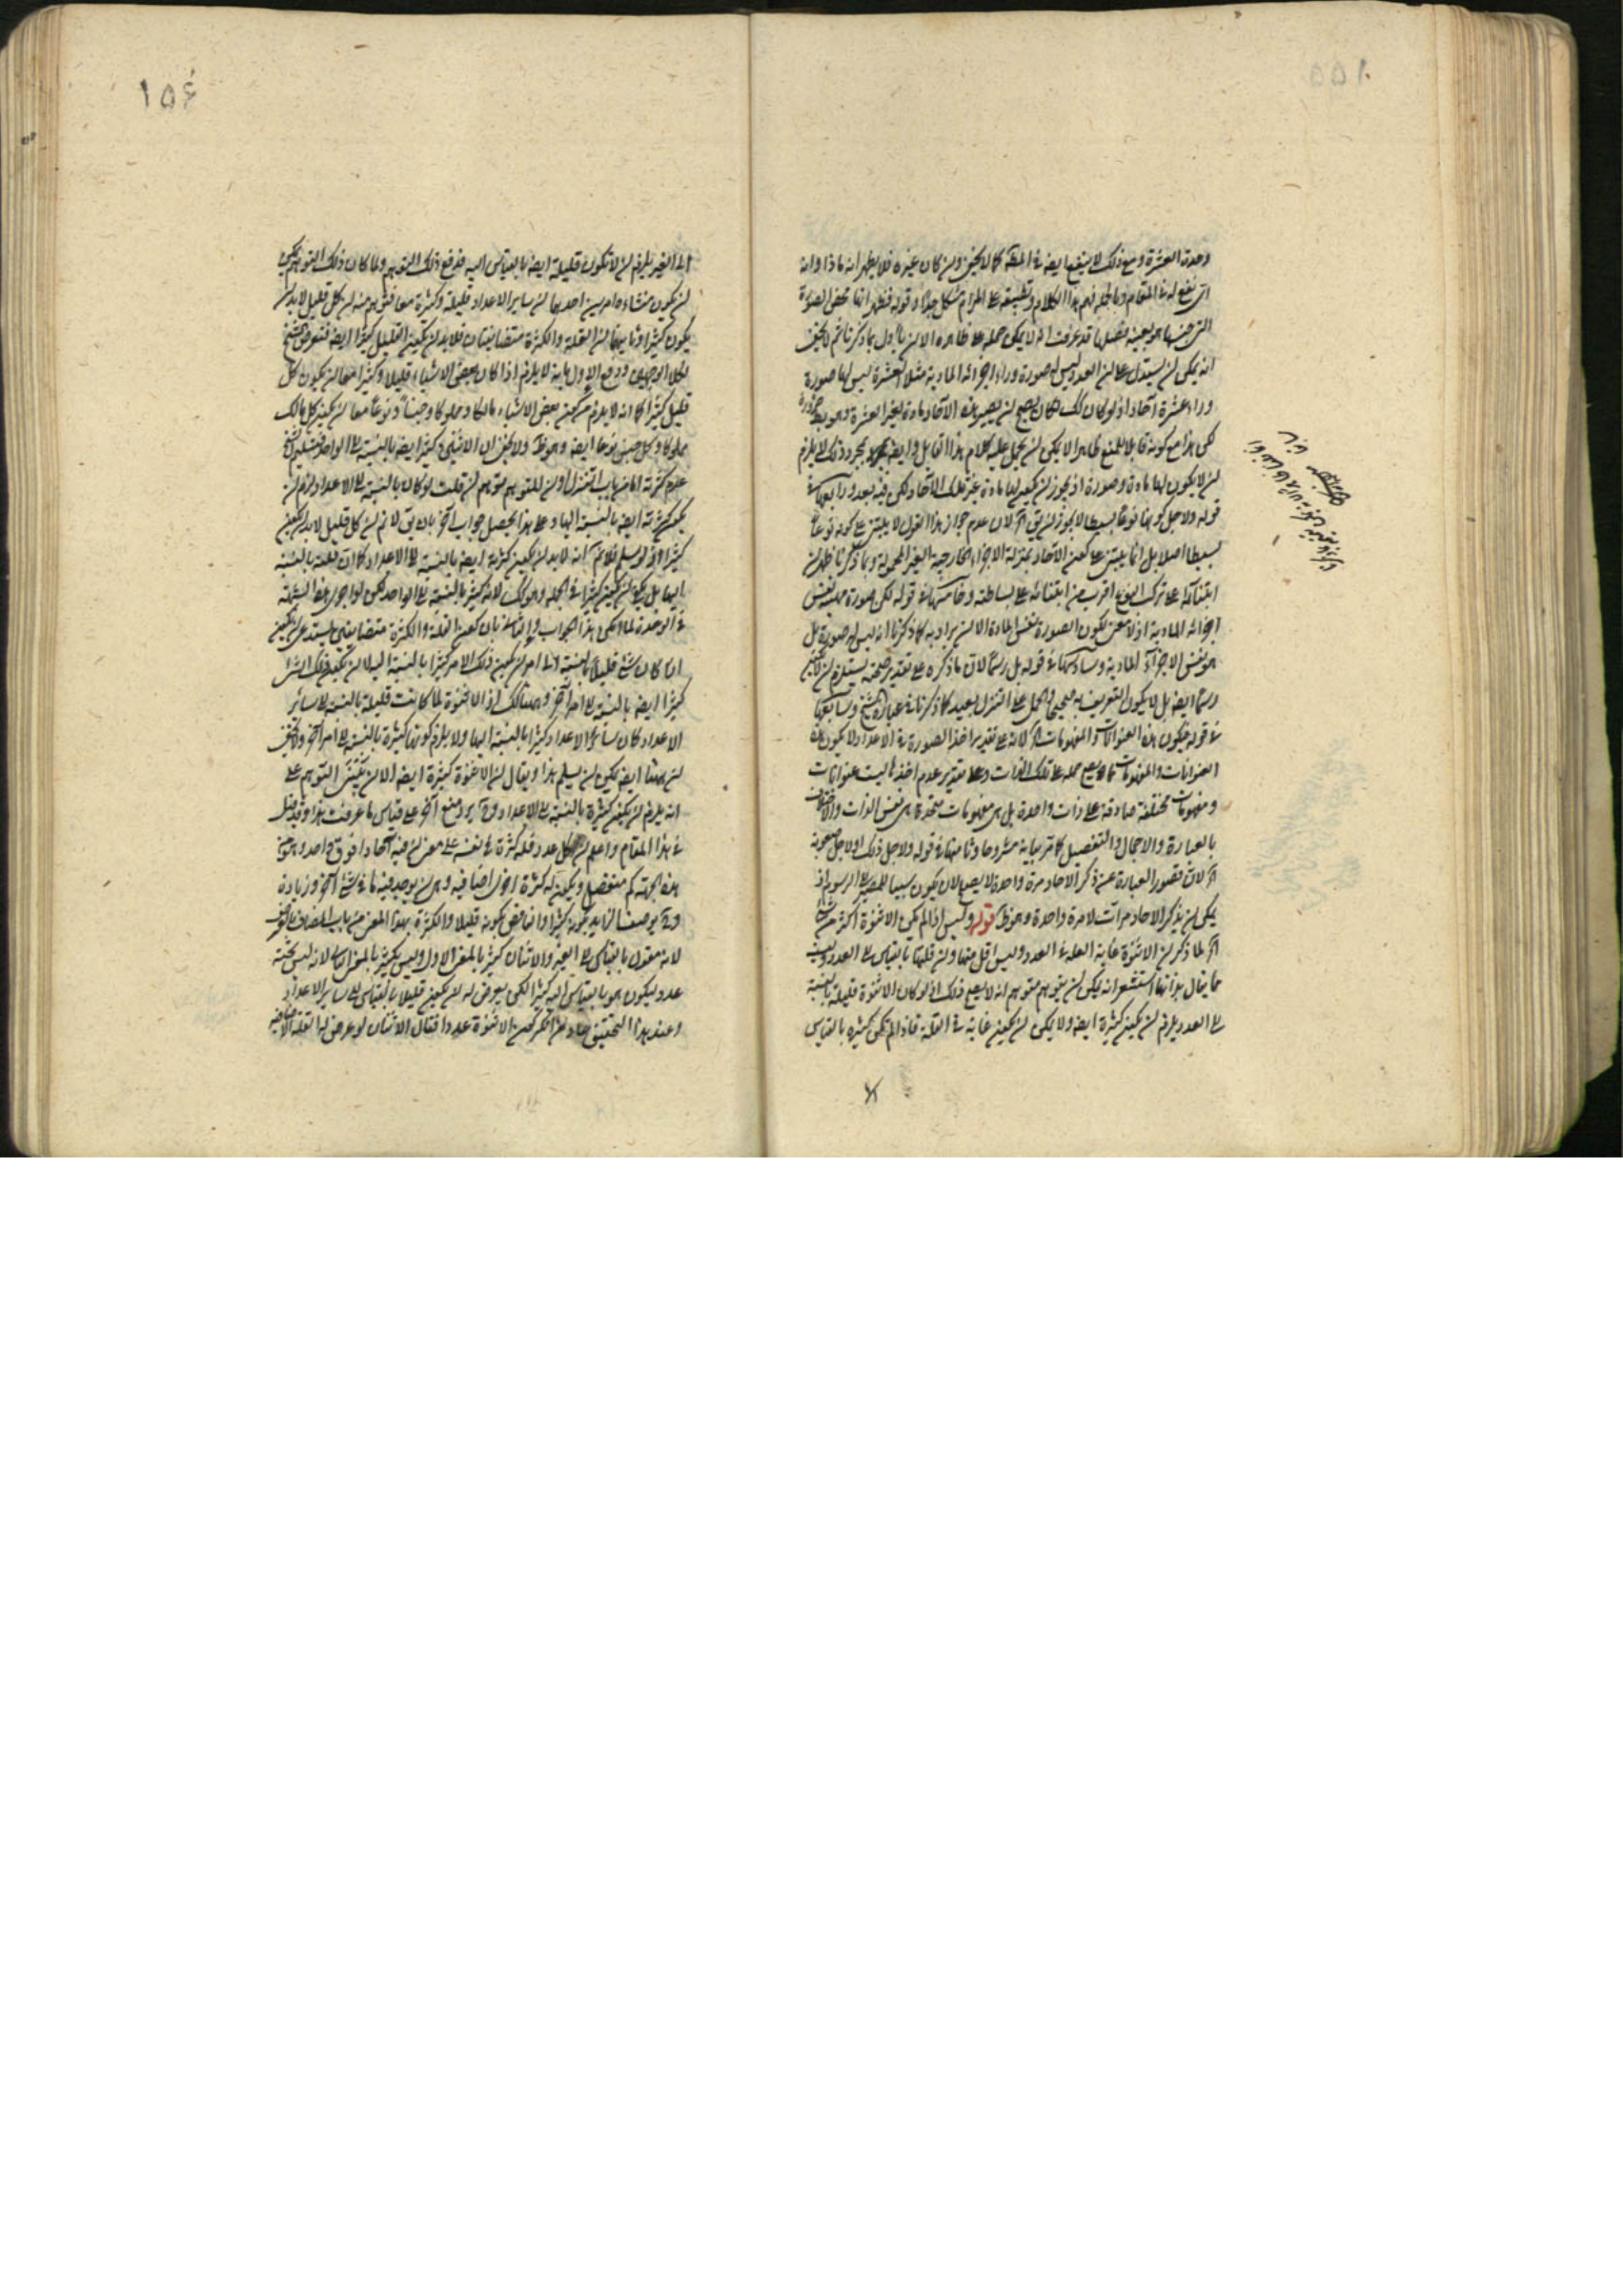 ١٥٥
وحدته العشرة ومع ذلك لا ينفع ايضه فى المقه كما لا يخفى ولن كان غيره فلا يظهر انه ماذا وانه
اى نفع له فى المقام وبالجمله فهم هذا الكلام وتطبيقه على المرام مشكل جدا وقوله فظهر انها محض الصورة
التى جنسها هو بعينه فصلها قد عرفت انه لا يمكن حمله على ظاهره الا لن ياول بما ذكرنا ثم لا يخفى
انه يمكن لن يستدل على لن العدد ليس له صورة وراء اجزائه المادية مثلا العشرة ليس لها صورة
وراء عشرة آحاد اذ لو كان كك لكان يصح لن يصير هذه الآحاد مادة لغير العشرة وهو بط ضرورة
لكن هذا مع كونه قابلا للمنع ظاهرا لا يمكن لن يحمل عليه كلام هذا القايل وايضه بمجرد ذلك لا يلزم
لن لا يكون لها مادة وصورة اذ يجوز لن يكون لها مادة غير تلك الآحاد لكن فيه بعد ورابعها فى
قوله ولاجل كونها نوعا بسيطا لا يجوز لن يق آه لان عدم جواز هذا القول لا يبتنى على كونه نوعا
بسيطا اصلا بل انما يبتنى على كون الآحاد بمنزلة الاجزاء الخارجية الغير المحمولة وبما ذكرنا ظهر لن
ابتنائه على تركب النوع اقرب من ابتنائه على بساطته وخامسها فى قوله لكن صورة مهيته نفس
اجزائه المادية اذ لا معنى لكون الصورة نفس المادة الا لن يراد به كما ذكرنا انه ليس له صورة بل
هو نفس الاجزاء المادية وسادسها فى قوله بل رسما لان ما ذكره على تقدير صحته يستلزم لن لا يكون
رسما ايضه بل لا يكون التعريف به صحيحا والحمل على التنزل بعيد كما ذكرنا فى عبارة الشيخ وسابعها
فى قوله فيكون هذه العنوانات والمفهومات آه لانه على تقدير اخذ الصورة فى الاعداد لا يكون هذه
العنوانات والمفهومات مما يصح حمله على تلك الذات وعلى تقدير عدم اخذها ليست عنوانات
ومفهومات مختلفة صادقة على ذات واحدة بل هى مفهومات متحدة هى نفس الذات والاختلاف
بالعبارة والاجمال والتفصيل كما مر بيانه مشروحا وثامنها فى قوله ولاجل ذلك اولاجل صعوبة
آه لان قصور العبارة عن ذكر الآحاد مرة واحدة لا يصح لان يكون سببا للمصير الى الرسوم اذ
يمكن لن يذكر الآحاد مرات لا مرة واحدة وهو ظ قوله وليس اذا لم يكن الاثنوة اكثر من شئ
آه لما ذكر لن الاثنوة غاية القلة فى العدد وليس اقل منها ولن قلتها بالقياس الى العدد وليست
مما ينال بذاتها استشعر انه يمكن لن يتوهم متوهم انه لا يصح ذلك اذ لو كان الاثنوة قليلة بالنسبة
الى العدد يلزم لن يكون كثيرة ايضه ولا يمكن لن يكون غاية فى القلة فاذا لم تكن كثيرة بالقياس
١٥٤
الى الغير يلزم لن لا تكون قليلة ايضه بالقياس اليه فدفع ذلك التوهم ولما كان ذلك التوهم يمكن
لن يكون منشاءه امرين احدهما لن ساير الاعداد قليلة وكثيرة معا فتوهم منه لن كل قليل لابد لن
يكون كثيرا وثانيهما لن القلة والكثرة متضايفتان فلابد لن يكون القليل كثيرا ايضه فتعرض الشيخ
لكلا الوجهين ودفع الاول بانه لا يلزم اذا كان بعض الاشياء قليلا وكثيرا معا لن يكون كل
قليل كثيرا كما انه لا يلزم من كون بعض الاشياء مالكا ومملوكا وجنسا ونوعا معا لن يكون كل مالك
مملوكا وكل جنس نوعا ايضه وهو ظ ولا يخفى ان الاثنين كثيرا ايضه بالنسبة الى الواحد فتسليم الشيخ
عدم كثرته اما من باب التنزل اولن المتوهم توهم لن قلت لو كان بالنسبة الى الاعداد لزم لن
يكون كثرته ايضه بالنسبة اليها وعلى هذا يحصل جواب آخر بان يق لا نم لن كل قليل لابد لن يكون
كثيرا ولو سلم فلا نم انه لابد لن يكون كثرته ايضه بالنسبة الى الاعداد كما ان قلته بالنسبة
اليها بل يكفى لن يكون كثيرا فى الجملة وهو كك لانه كثير بالنسبة الى الواحد لكن لو اجرى هذه الشبهة
فى الوحدة لما امكن هذا الجواب والثانى بان كون القلة والكثرة متضايفين يستدعى لن يكون
اذا كان شئ قليلا بالنسبة الى امر لن يكون ذلك الامر كثيرا بالنسبة اليه لا لن يكون ذلك الشئ
كثيرا ايضه بالنسبة الى امر آخر وههنا كك اذ الاثنوة لما كانت قليلة بالنسبة الى سائر
الاعداد كان سائر الاعداد كثيرا بالنسبة اليها ولا يلزم كونها كثيرة بالنسبة الى امر آخر ولا يخفى
لن ههنا ايضه يمكن لن يسلم هذا ويقال لن الاثنوة كثيرة ايضه الا لن يبنى التوهم على
انه يلزم لن يكون كثيرة بالنسبة الى الاعداد وح يرد منع آخر على قياس ما عرفت هذا وقد قيل
فى هذا المقام واعلم لن لكل عدد فله كثرة فى نفسه على معنى لن فيه آحادا فوق واحد وهو من
هذه الجهة كم منفصل ويكون له كثرة اخرى اضافيه وهى لن يوجد فيه ما فى شئ آخر وزيادة
وح يوصف الزايد بكونه كثيرا والناقص بكونه قليلا والكثرة بهذا المعنى من باب المضاف بالعرض
لانه مقول بالقياس الى الغير والاثنان كثير بالمعنى الاول وليس بكثير بالمعنى الثانى لانه ليس تحته
عدد ليكون هو بالقياس اليه كثيرا لكن يعرض له لن يكون قليلا بالقياس الى ساير الاعداد
وعند هذا التحقيق عاد لن انكر كون الاثنوة عددا فقال الاثنان لو عرض لها القلة الاضافيه